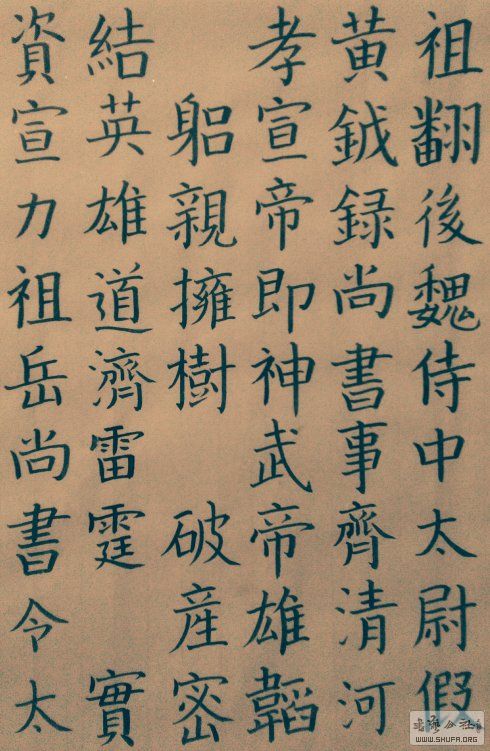 祖翻後魏侍中太尉假
黄鉞録尚書事齊清河
孝宣帝即神武帝雄韜
躳親擁樹 破産密
結英雄道濟雷霆 實
資宣力祖岳尚書令太
WWW.SHUFA.ORG